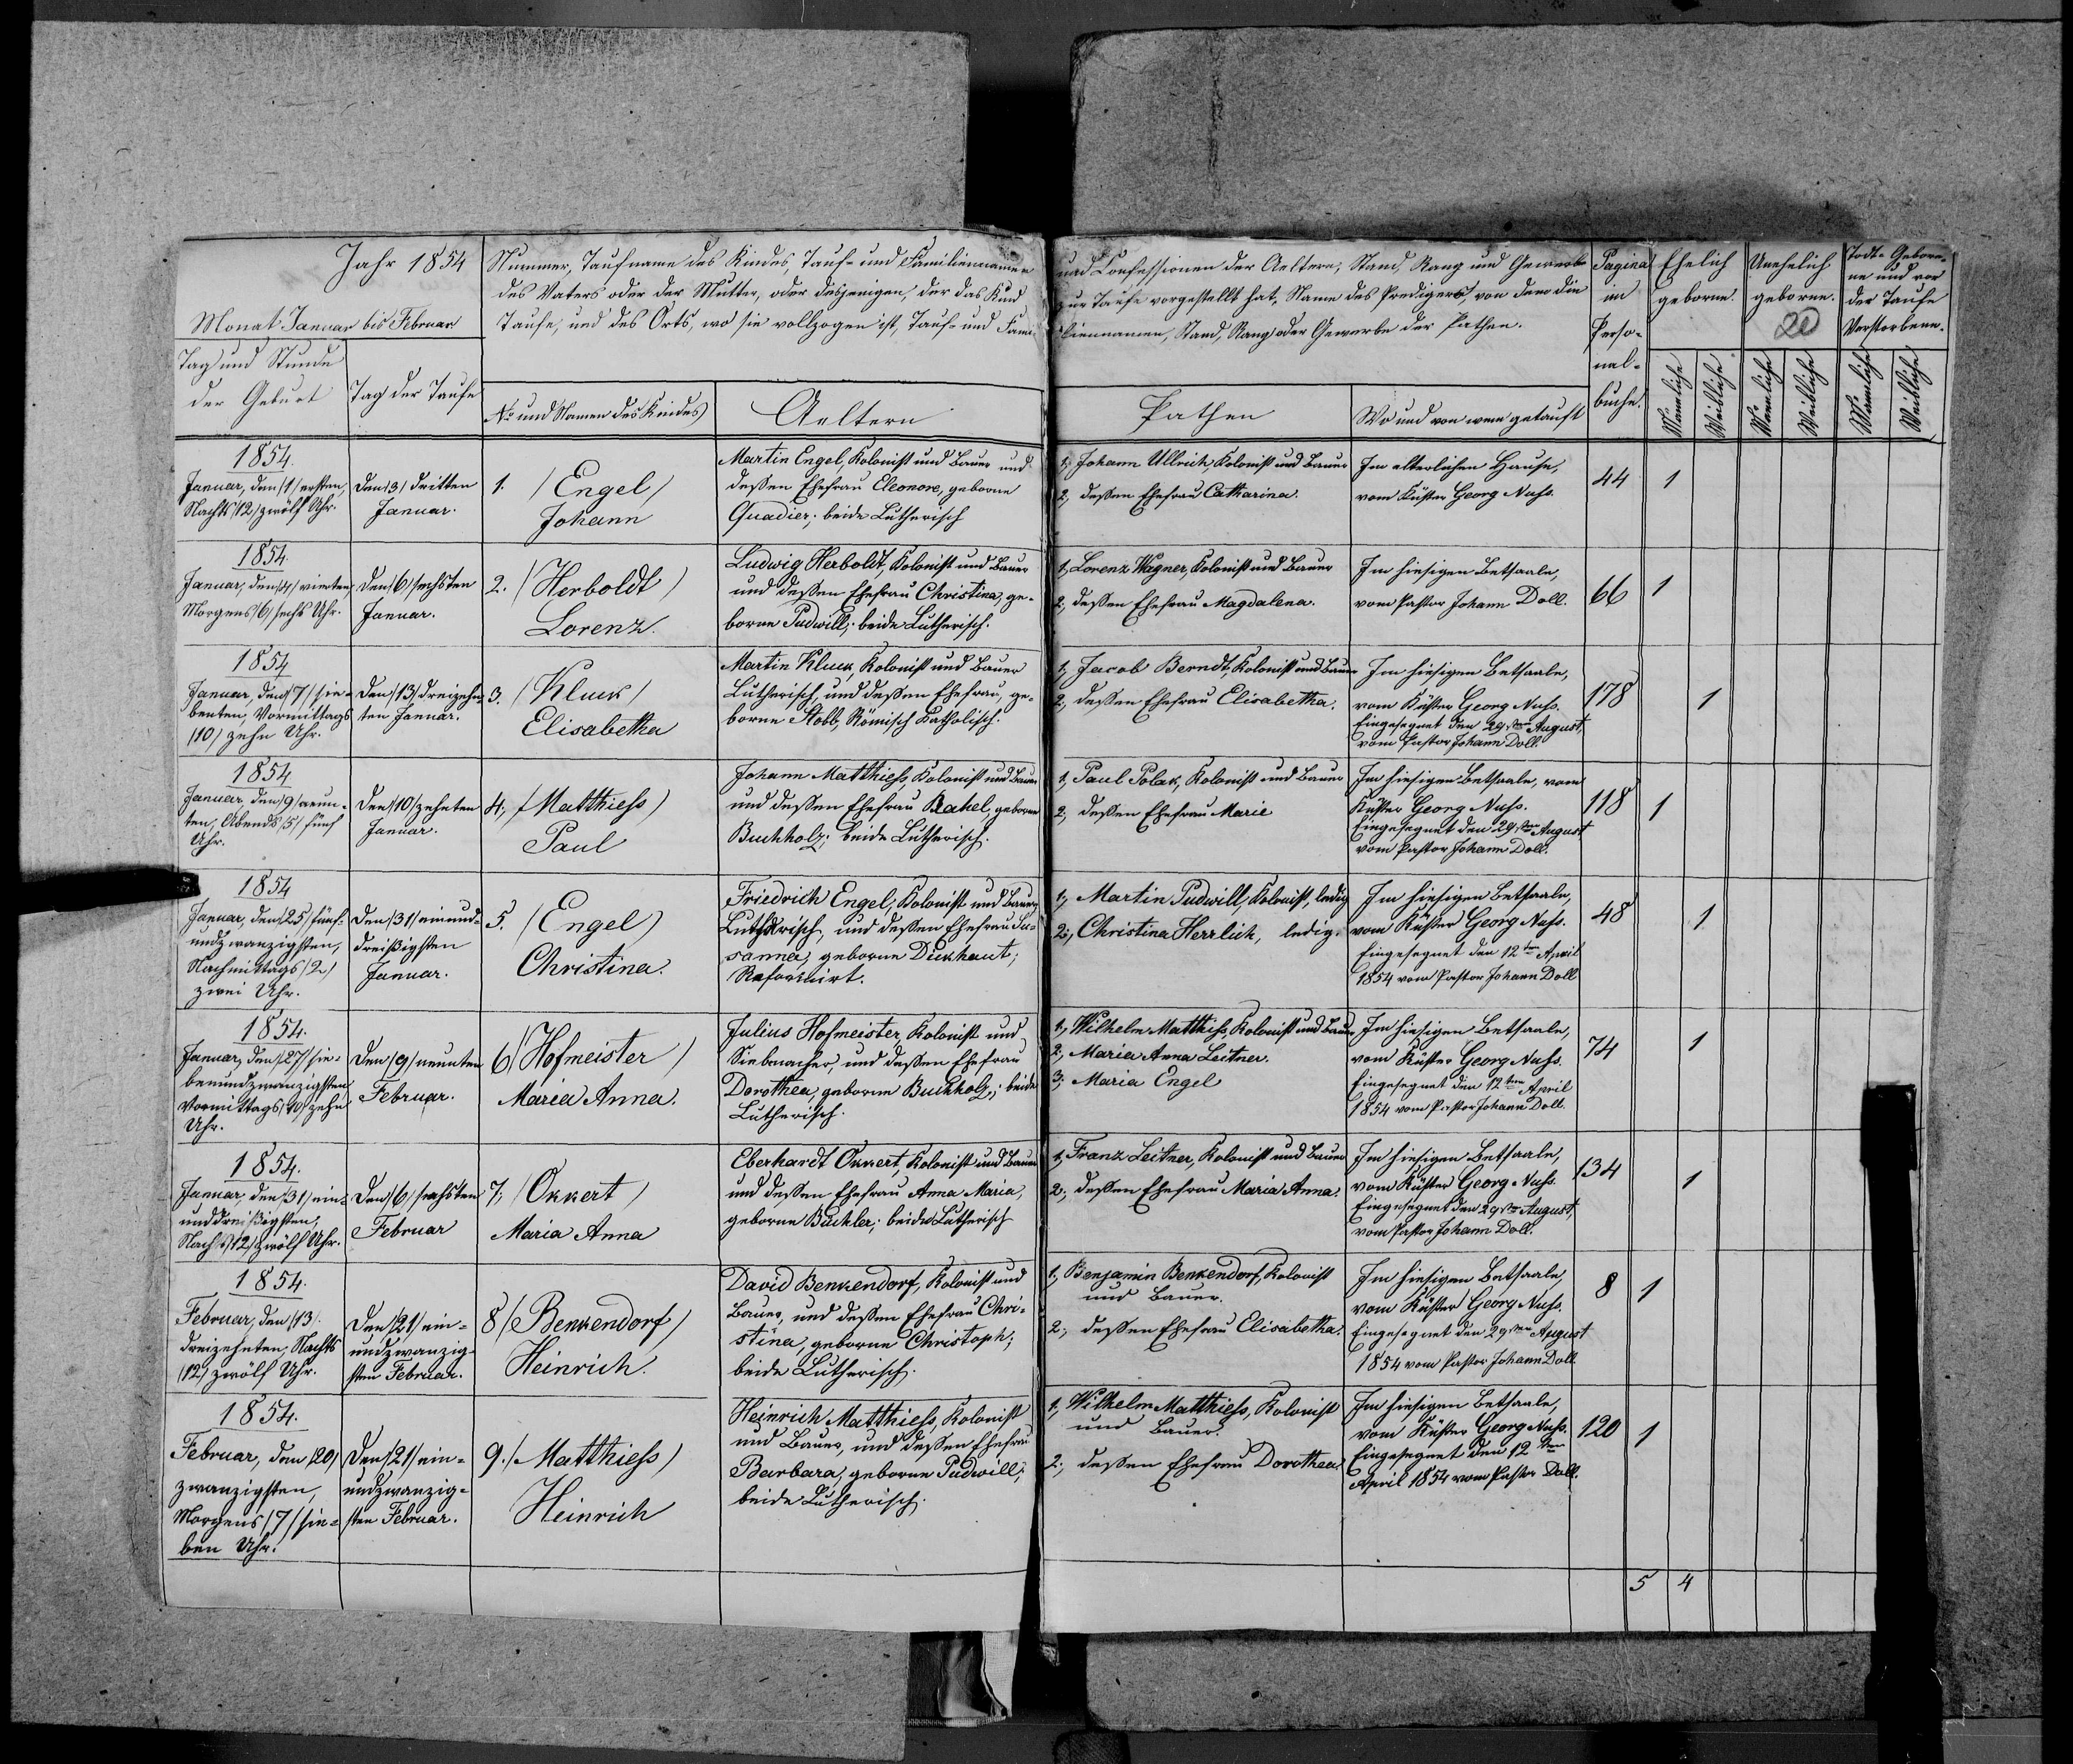 Jahr 1854
Monat Januar bis Februar
Nummer, Taufname des Kindes, Tauf- und Familiennamen
des Vaters oder der Mutter, oder desjenigen, der das Kind
Taufe, und des Orts, wo sie vollzogen ist, Tauf und Fami-
Tag und Stunde
der Geburt
Tag der Taufe
No und Namen des Kindes
Aeltern
und Confessionen der Aeltern, Stand, Rang und Gewerbe
zur Taufe vorgestellt hat, Name des Predigers, von dem die
liennamen, Stand, Rang oder Gewerbe der Pathen.
Pathen
Wo und von wem getauft
Pagina
im
Perso-
nal-
buche.
Ehelich
geborne.
Unehelich
geborne.
20
Todt-Gebor-
ne und vor
der Taufe
Verstorbene.
Männliche
Weibliche
Männliche
Weibliche
Männliche
Weibliche
1854.
Januar, den /1/ ersten,
Nachts /12/ zwölf Uhr.
Den /3/ dritten
Januar.
1. /Engel/
Johann
Martin Engel, Kolonist und Bauer und
dessen Ehefrau Eleonore, geborne
Quadier; beide Lutherisch
1, Johann Ullrich, Kolonist und Bauer
2, dessen Ehefrau Catharina.
Im elterlichen Hause,
vom Küster Georg Nuss.
44
1
1854.
Januar, den /4/ vierten
Morgens /6/ sechs Uhr.
Den /6/ sechsten
Januar.
2. /Herboldt/
Lorenz.
Ludwig Herboldt, Kolonist und Bauer
und dessen Ehefrau Christina, ge-
borne Pudwill; beide Lutherisch.
1, Lorenz Wagner, Kolonist und Bauer
2, dessen Ehefrau Magdalena.
Im hiesigen Betsaale,
vom Pastor Johann Doll.
66
1
1854
Januar, den /7/ sie-
benten, Vormittags
/10/ zehn Uhr.
Den /13/ dreizehn-
ten Januar.
3. /Kluck/
Elisabetha
Martin Kluck, Kolonist und Bauer
Lutherisch, und dessen Ehefrau, ge-
borne Stobb, Römisch Katholisch.
1, Jacob Berndt, Kolonist und Bauer
2, dessen Ehefrau Elisabetha.
Im hiesigen Betsaale,
vom Küster Georg Nuss.
Eingesegnet den 29sten August,
vom Pastor Johann Doll.
178
1
1854
Januar, den /9/ neun-
ten, Abends /5/ fünf
Uhr.
Den /10/ zehnten
Januar.
4, /Matthiess/
Paul
Johann Matthiess, Kolonist und Bauer
und dessen Ehefrau Rahel, geborne
Buchholz; beide Lutherisch.
1, Paul Polak, Kolonist und Bauer
2, dessen Ehefrau Marie
Im hiesigen Betsaale, vom
Küster Georg Nuss.
Eingesegnet den 29sten August
vom Pastor Johann Doll.
118
1
1854
Januar, den /25/ fünf-
undzwanzigsten,
Nachmittags /2/
zwei Uhr.
Den /31/ einund-
dreißigsten
Januar.
5. /Engel/
Christina.
Friedrich Engel, Kolonist und Bauer,
Lutherisch, und dessen Ehefrau Su-
sanna, geborne Dickhaut;
Reformirt.
1, Martin Pudwill, Kolonist, ledig
2, Christina Herrlich, ledig.
Im hiesigen Betsaale,
vom Küster Georg Nuss.
Eingesegnet den 12ten April
1854 vom Pastor Johann Doll
48
1
1854.
Januar, den /27/ sie-
benundzwanzigsten
Vormittags /10/ zehn
Uhr.
Den /9/ neunten
Februar.
6 /Hofmeister/
Maria Anna.
Julius Hofmeister, Kolonist und
Siebmacher, und dessen Ehefrau
Dorothea, geborne Buchholz; beide
Lutherisch.
1, Wilhelm Matthiss, Kolonist und Bauer
2, Maria Anna Leitner.
3, Maria Engel
Im hiesigen Betsaale,
vom Küster Georg Nuss.
Eingesegnet den 12ten April
1854 vom Pastor Johann Doll.
74
1
1854.
Januar, den /31/ ein-
unddreißigsten,
Nachts /12/ zwölf Uhr.
Den /6/ sechsten
Februar
7, /Okkert/
Maria Anna
Eberhardt Okkert, Kolonist und Bauer
und dessen Ehefrau Anna Maria,
geborne Büchler; beide Lutherisch
1, Franz Leitner, Kolonist und Bauer
2, dessen Ehefrau Maria Anna.
Im hiesigen Betsaale,
vom Küster Georg Nuss.
Eingesegnet den 29sten August,
vom Pastor Johann Doll.
134
1
1854.
Februar, den /13/
dreizehnten, Nachts
/12/ zwölf Uhr.
Den /21/ ein-
undzwanzig-
sten Februar.
8 /Benkendorf/
Heinrich.
David Benkendorf, Kolonist und
Bauer, und dessen Ehefrau Chri-
stina, geborne Christoph;
beide Lutherisch.
1, Benjamin Benkendorf, Kolonist
und Bauer.
2, dessen Ehefrau Elisabetha.
Im hiesigen Betsaale,
vom Küster Georg Nuss.
Eingesegnet den 29sten August
1854 vom Pastor Johann Doll.
8
1
1854.
Februar, den /20/
zwanzigsten,
Morgens /7/ sie-
ben Uhr.
Den /21/ ein-
undzwanzig-
sten Februar.
9. /Matthiess/
Heinrich
Heinrich Matthiess, Kolonist
und Bauer, und dessen Ehefrau
Barbara, geborne Pudwill;
beide Lutherisch.
1, Wilhelm Matthiess, Kolonist
und Bauer.
2, dessen Ehefrau Dorothea
Im hiesigen Betsaale,
vom Küster Georg Nuss.
Eingesegnet den 12ten
April 1854 vom Pastor Doll.
120
1
5 4